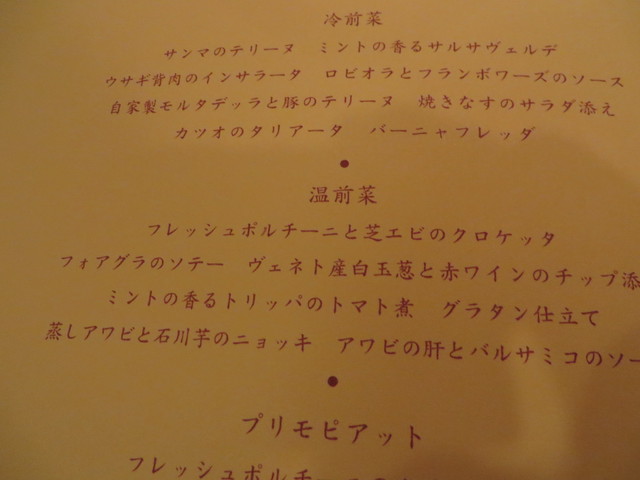 冷前菜
サンマのテリーヌ　ミントの香るサルサヴェルデ
ウサギ背肉のインサラータ　ロビオラとフランボワーズのソース
自家製モルタデッラと豚のテリーヌ　焼きなすのサラダ添え
カツオのタリアータ　バーニャフレッダ
●
温前菜
フレッシュポルチーニと芝エビのクロケッタ
フォアグラのソテー　ヴェネト産白玉葱と赤ワインのチップ添
ミントの香るトリッパのトマト煮　グラタン仕立て
蒸しアワビと石川芋のニョッキ　アワビの肝とバルサミコのソー
●
プリモピアット
フレッシュポルチー